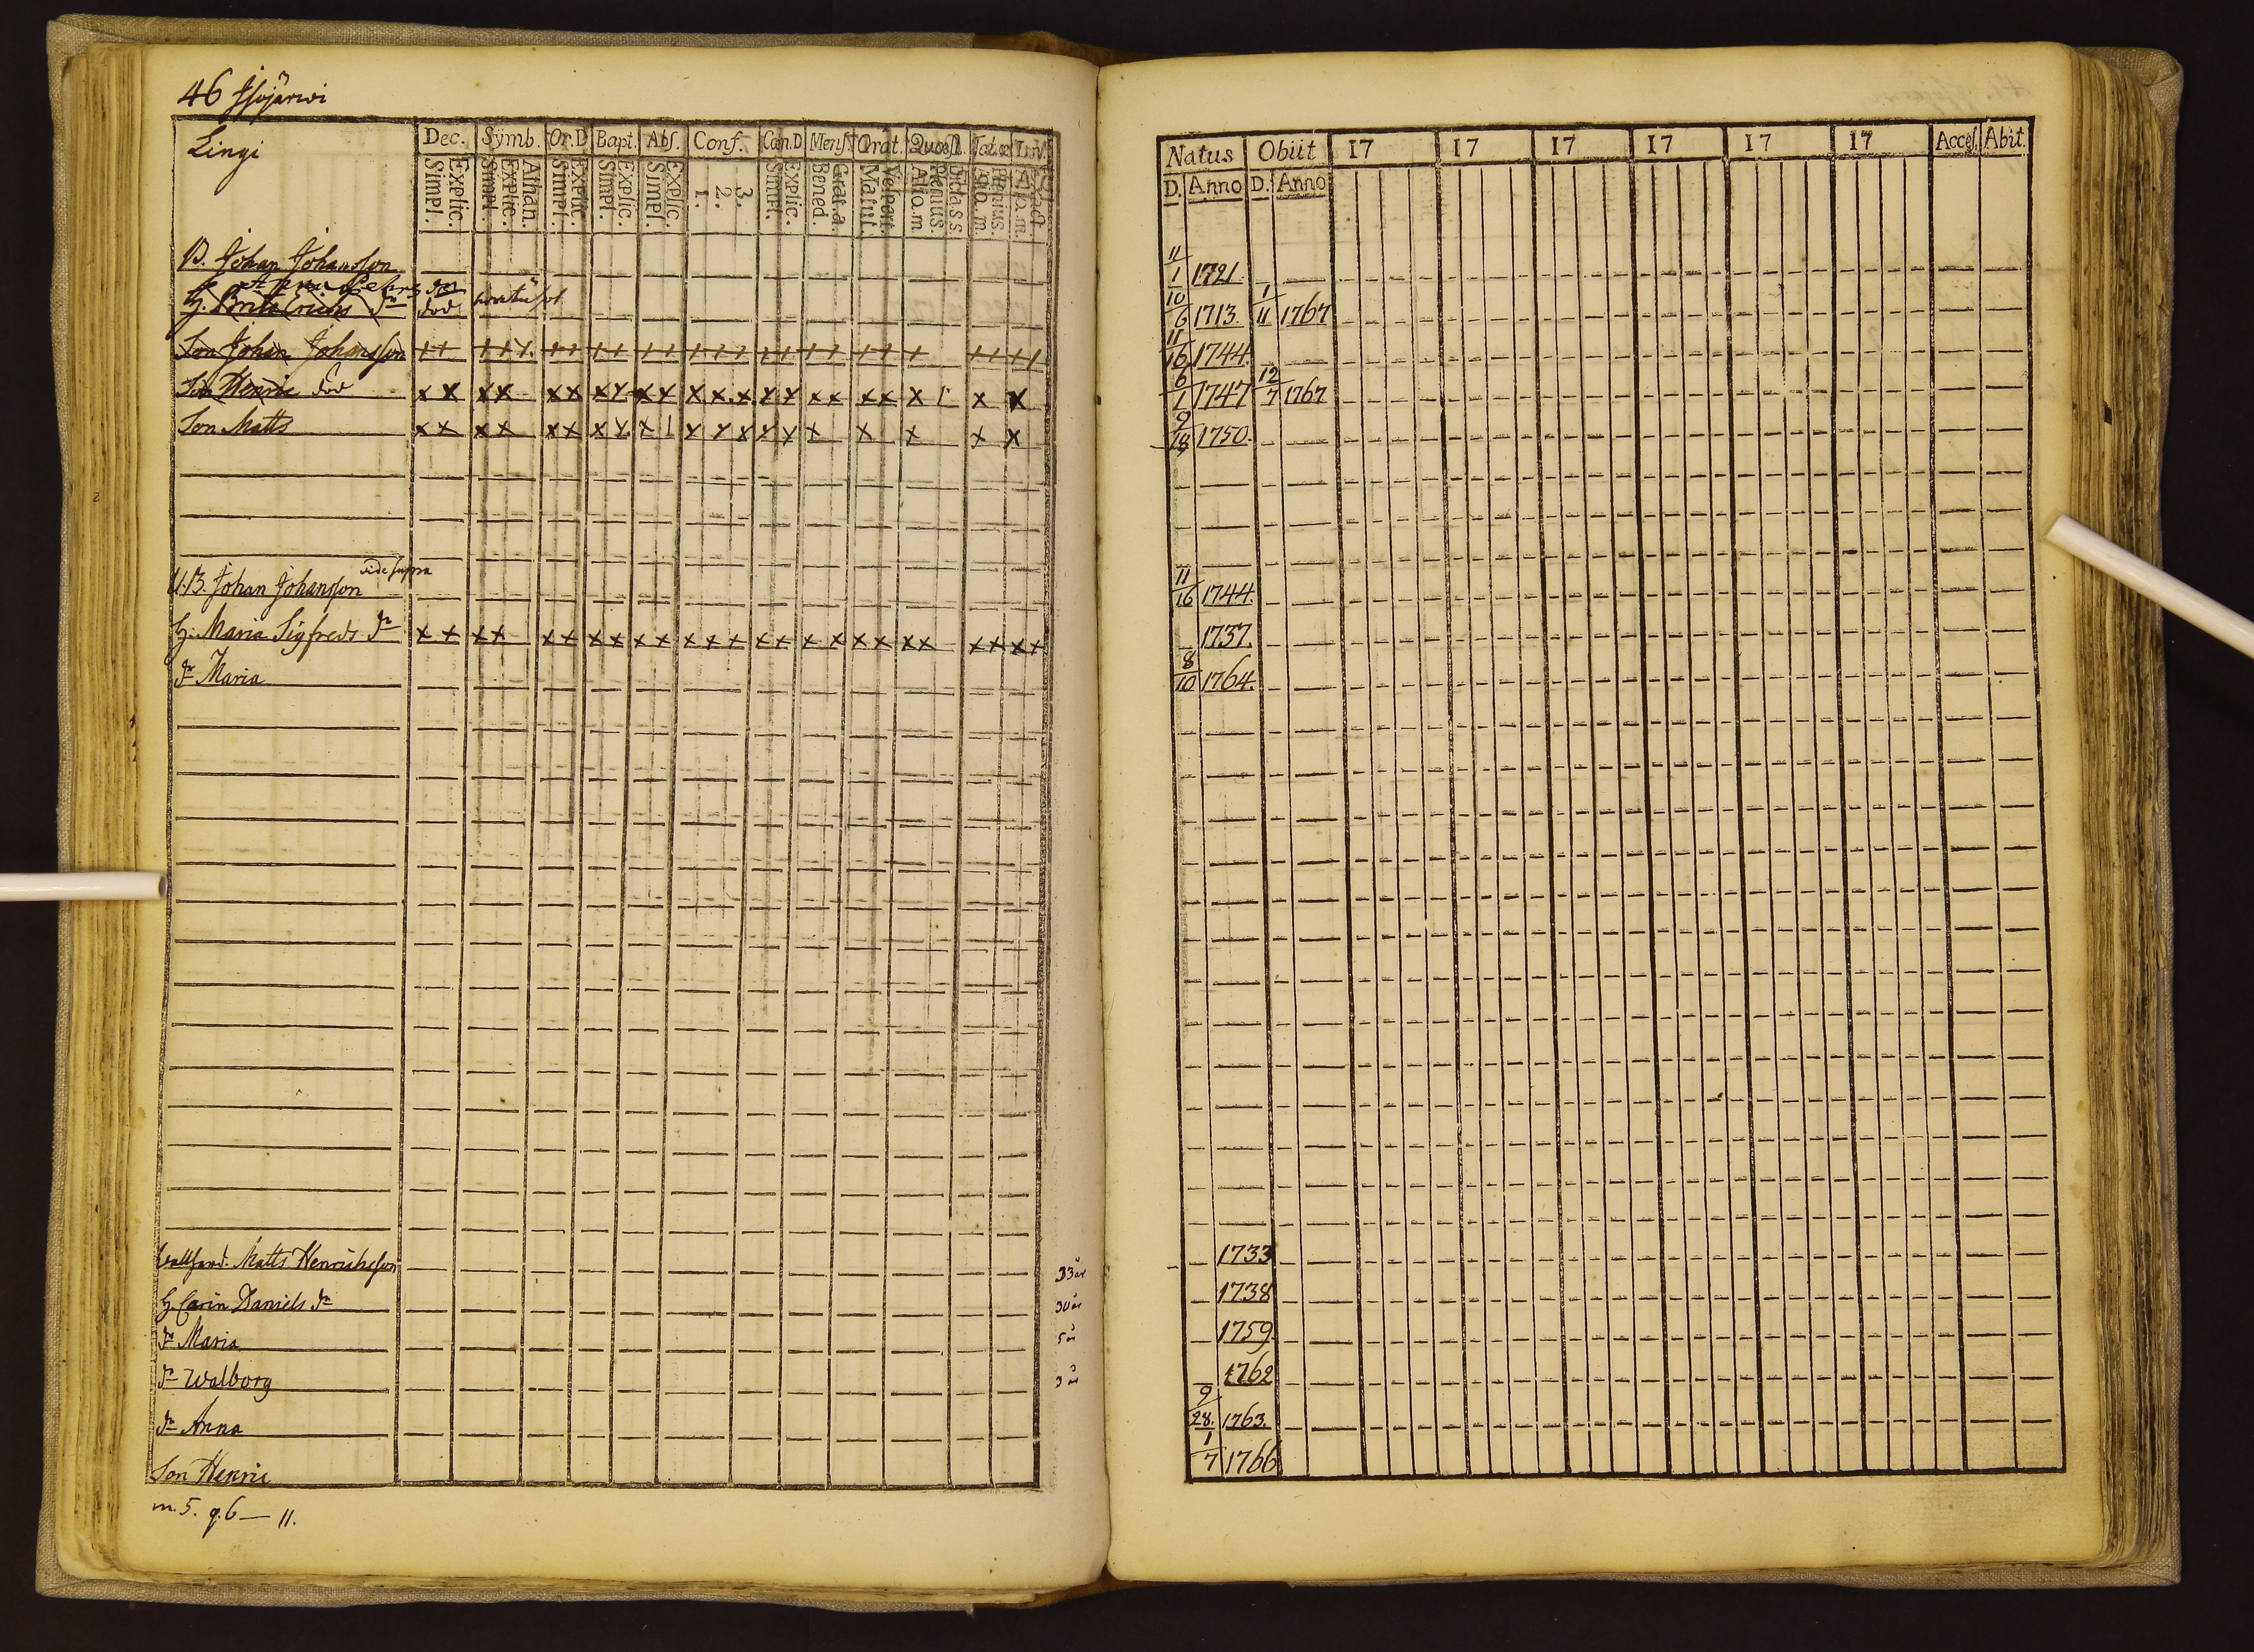 46 Isojärwi
Lingi
Dec. Sÿmb. Or.D Bapt. Abs. Conf. Can.D Mens. Orat. Quæst.
Explic. Simpl. Athan. Explic. Simpl. Explic. Simpl. Explic. Simpl. Explic. Simpl. 3. 2. 1. Explic. Simpl. Grat.a. Bened. Vespert. Matut.
B. Johan Johansson
H. Brita Erichs dr död
Son Johan Johansson ++ +++ ++ ++ ++ +++ ++ ++ ++ + ++ ++
Son Henric död x x x x x x x x x x x x x x x x x x x x x x
Son Matts x x x x x x x x x x x x x x x x x x x
vide supra
U.B. Johan Johansson
H. Maria Sigfreds dr x x x x x x x x x x x x x x x x x x x x x x x x x
dr Maria
Matts Henrichsson 33 år
H. Carin Daniels dr 30 år
dr Maria 5 år
dr Walborg 3 år
dr Anna
Son Henric
m. 5. q. 6 — 11.
Natus Obiit 17 17 17 17 17 17 Acces. Abit.
D. Anno D. Anno
11/1 1721.
10/6 1713. 1/11 1767
11/16 1744.
6/1 1747 12/7 1767
9/18 1750.
11/16 1744.
1737.
8/10 1764.
1733
1738
1759
1762
9/28. 1763.
1/7 1766